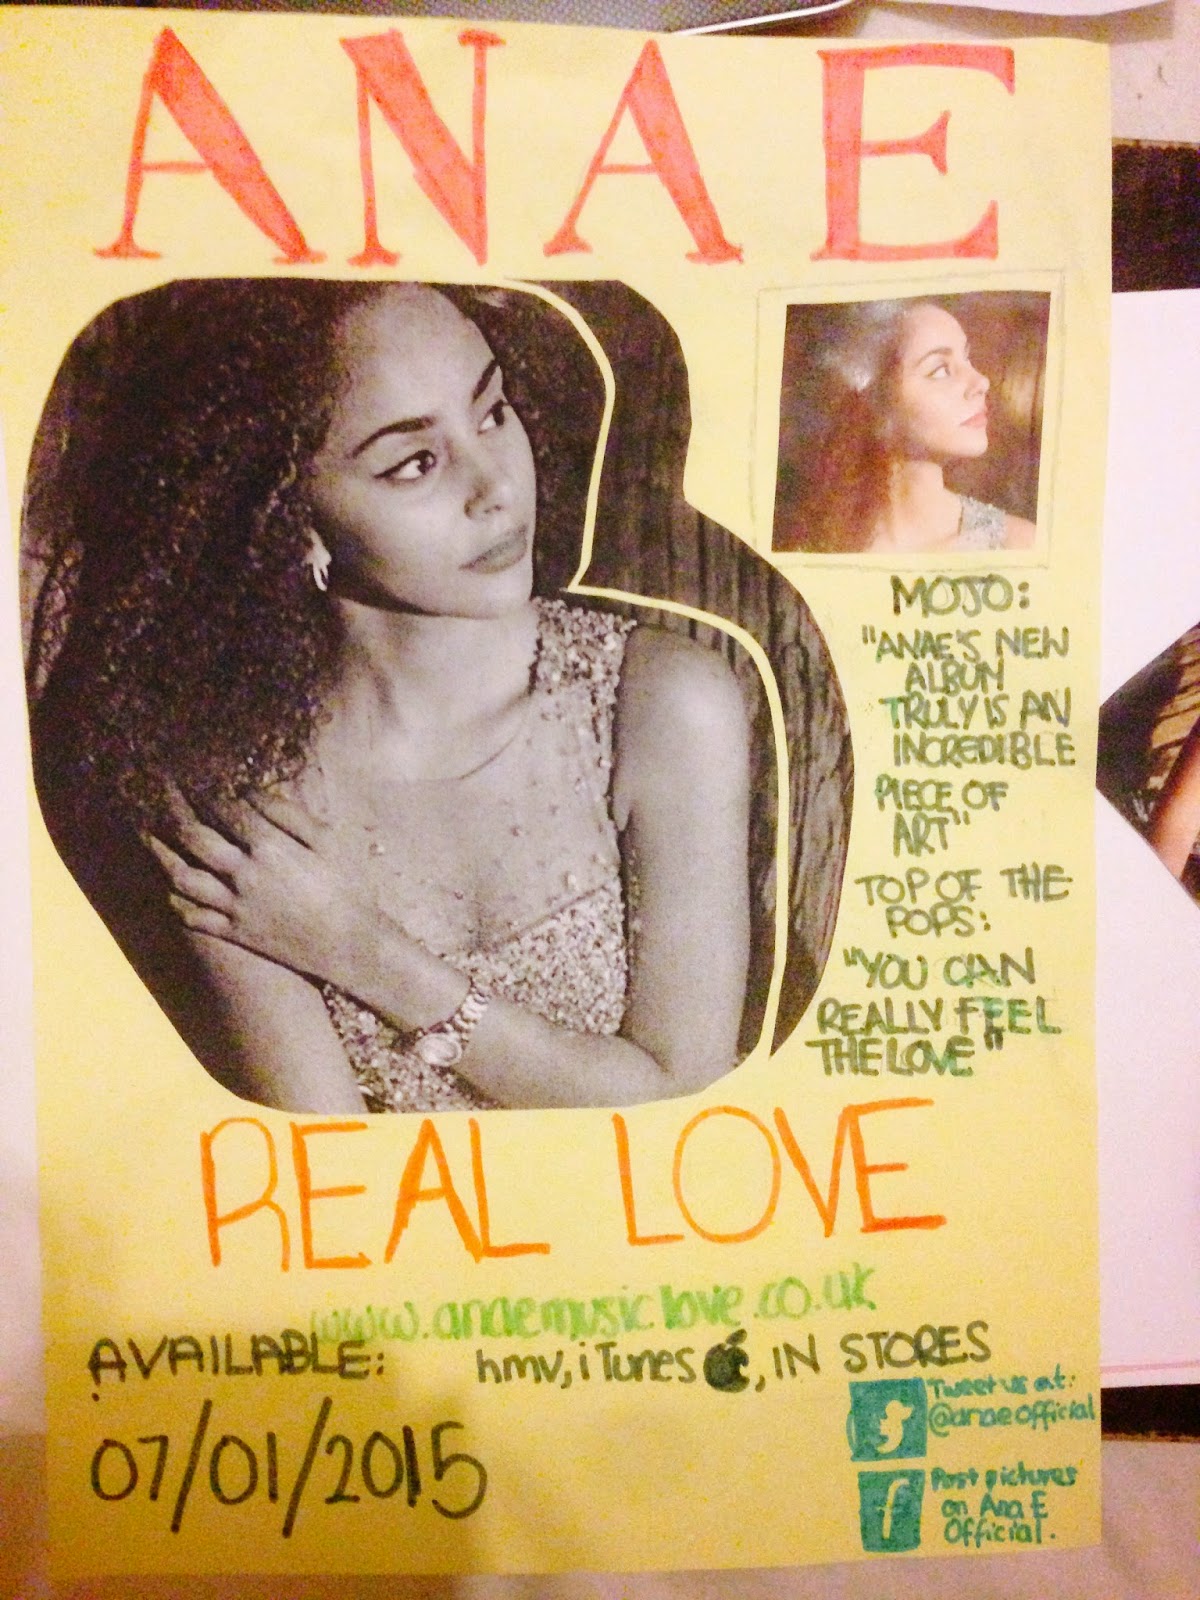 ANAE
MOJO:
"ANAE'S NEW
ALBUM
TRULY IS AN
INCREDIBLE
PIECE OF
ART"
TOP OF THE
POPS:
"YOU CAN
REALLY FEEL
THE LOVE"
REAL LOVE
www.anaemusiclove.co.uk
AVAILABLE: hmv, iTunes , IN STORES
07/01/2015
Tweet us at:
@anaeofficial
f
Post pictures
on Ana E
Official.